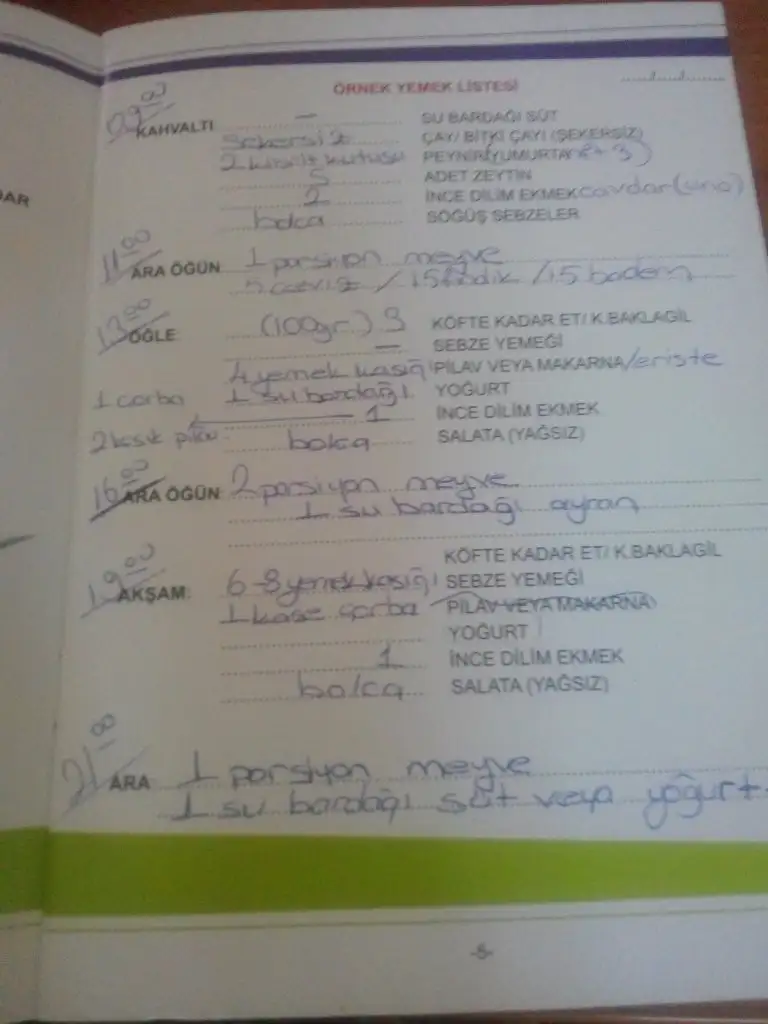 ÖRNEK YEMEK LİSTESİ ...../...../.....
09 00 KAHVALTI — SU BARDAĞI SÜT
şekersiz ÇAY/ BİTKİ ÇAYI (ŞEKERSİZ)
2 kibrit kutusu PEYNİR/YUMURTA
5 ADET ZEYTİN
2 İNCE DİLİM EKMEK cavdar (uno)
bolca SÖĞÜŞ SEBZELER
11 00 ARA ÖĞÜN 1 porsiyon meyve
5 ceviz / 15 fındık / 15 badem
13 00 ÖĞLE (100gr.) 3 KÖFTE KADAR ET/ K.BAKLAGİL
— SEBZE YEMEĞİ
4 yemek kaşığı PİLAV VEYA MAKARNA /erişte
1 çorba 1 su bardağı YOĞURT
1 İNCE DİLİM EKMEK
2 kaşık pilav bolca SALATA (YAĞSIZ)
16 00 ARA ÖĞÜN 2 porsiyon meyve
1 su bardağı ayran
19 00 AKŞAM KÖFTE KADAR ET/ K.BAKLAGİL
6-8 yemek kaşığı SEBZE YEMEĞİ
1 kase çorba PİLAV VEYA MAKARNA
YOĞURT
1 İNCE DİLİM EKMEK
bolca SALATA (YAĞSIZ)
21 00 ARA 1 porsiyon meyve
1 su bardağı süt veya yoğurt
-5-